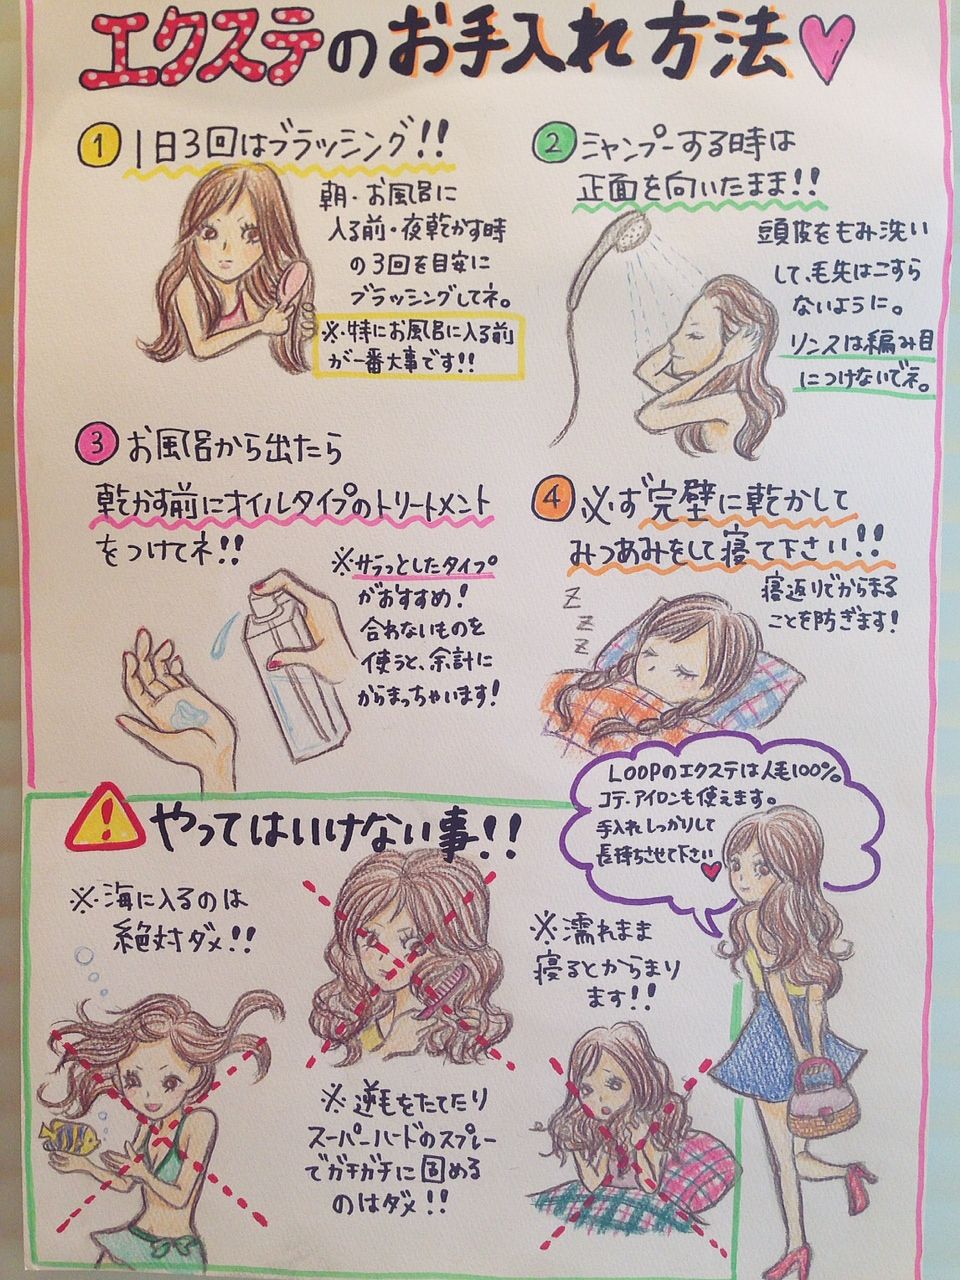 エクステのお手入れ方法
① 1日3回はブラッシング!!
朝・お風呂に
入る前・夜乾かす時
の3回を目安に
ブラッシングしてネ。
※・特にお風呂に入る前
が一番大事です!!
② シャンプーする時は
正面を向いたまま!!
頭皮をもみ洗い
して、毛先はこすら
ないように。
リンスは編み目
につけないでネ。
③ お風呂から出たら
乾かす前にオイルタイプのトリートメント
をつけてネ!!
※サラっとしたタイプ
がおすすめ!
合わないものを
使うと、余計に
からまっちゃいます!
④ 必ず完壁に乾かして
みつあみをして寝て下さい!!
寝返りでからまる
ことを防ぎます!
Z
Z
Z
LOOPのエクステは人毛100%
コテ・アイロンも使えます。
手入れしっかりして
長持ちさせて下さい
! やってはいけない事!!
※・海に入るのは
絶対ダメ!!
※逆毛をたてたり
スーパーハードのスプレー
でガチガチに固める
のはダメ!!
※濡れまま
寝るとからまり
ます!!